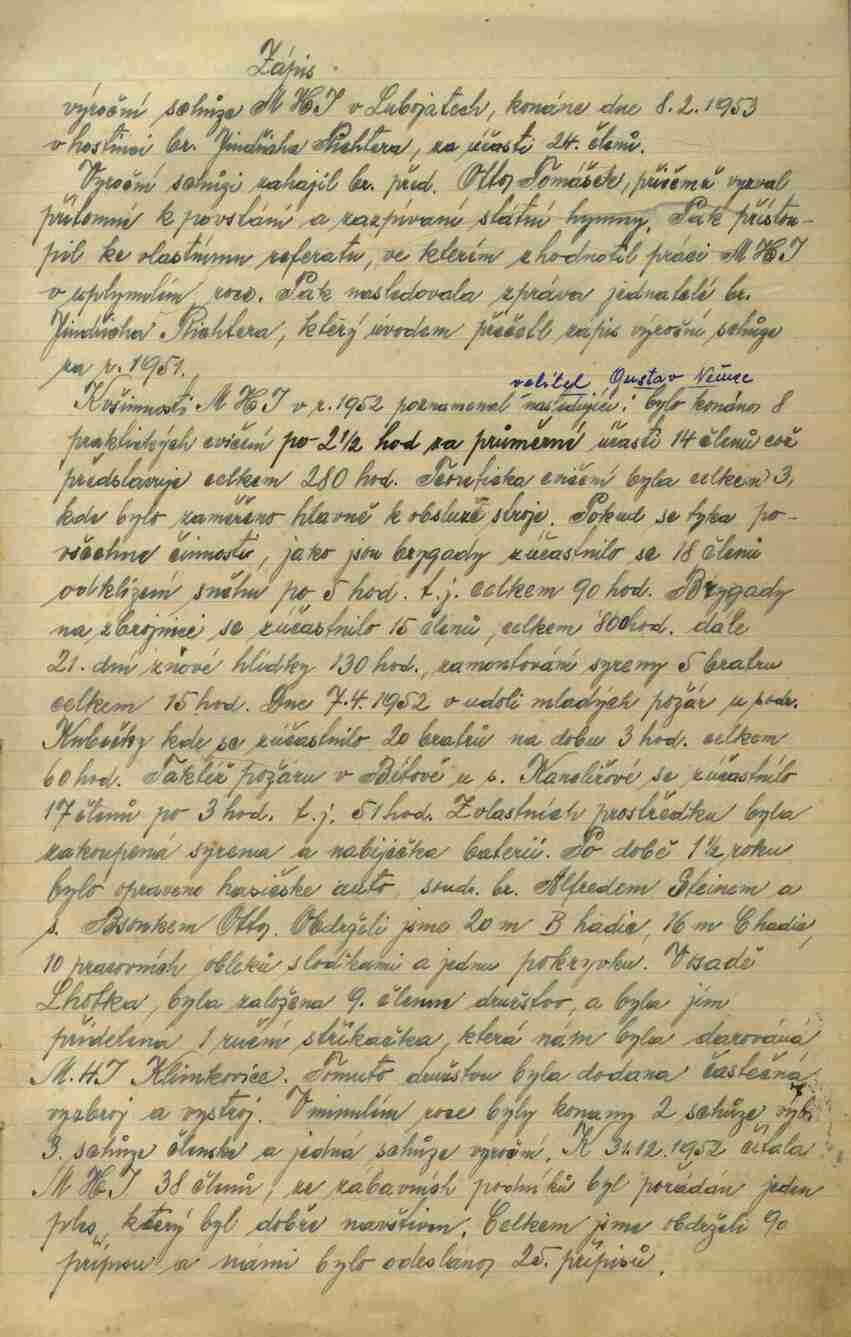 Zápis
výroční schůze M H J v Lubojatech, konáne dne 8.2.1953
v hostinci br. Jindřicha Richtera, za účasti 24. členů.
Výroční schůzi zahájil br. před. Otto Tomášek, přičemž vyzval
přítomní k povstání a zazpívaní státní hymny. Pak přistou-
pil ke vlastnímu referatu, ve kterém zhodnotil práci M H J
v uplynulím roce. Pak nasledovala zpráva jednatelé br.
Jindřicha Richtera, který úvodem přečetl zápis výroční schůze
za r. 1951.
velitel Gustav Němec
K činnosti M H J v r. 1952 poznamenal nasledující: bylo konáno 8
praktických cvičení po 2 1/2 hod za průměrní účasti 14 členů což
představuje celkem 280 hod. Teoreticka cvičení byla celkem 3,
kde bylo zaměřeno hlavně k obsluze stroje. Pokud se tyka po-
všechne činnosti, jako jsou brygady zúčastnilo se 18 členů
odklízení sněhu po 5 hod. t.j. celkem 90 hod. Brygady
na zbrojnici se zúčastnilo 15 členů, celkem 800 hod. dále
21. dní žňové hlídky 130 hod., zamontování syreny 5 bratru
celkem 15 hod. Dne 7.4.1952 v udoli mladých požár u soudr.
Kubečky kde se zúčastnilo 20 bratrů na dobu 3 hod. celkem
60 hod. Taktéž požáru v Bítově u s. Kanclířové se zúčastnilo
17 členů po 3 hod. t.j. 51 hod. Z vlastních prostředku byla
zakoupená syrena a nabiječka baterií. Po době 1 1/2 roku
bylo opraveno hasičske auto, soudr. br. Alfredem Bleinem a
s. Otto. Obdrželi jsme 20 m B hadic, 16 m C hadic,
10 pracovních obleků s lodikami a jednu pokryvku. V osadě
Lhotka, byla založena 9. členne družstvo, a byla jím
přidelena 1 ruční stříkačka, která nám byla darováná
M.H.J Klimkovice. Tomuto družstvu byla dodana častečná
vyzbroj a vystroj. V minulím roce byly konany 2 schůze výb.
3. schůze členske a jedná schůze výroční. K 31.12.1952 čítala
M H J 38 členů, ze zábavních podniků byl pořádán jeden
ples, který byl dobře navštiven. Celkem jsme obdrželi 90
přípisu a námi bylo odesláno 25. přípisů.